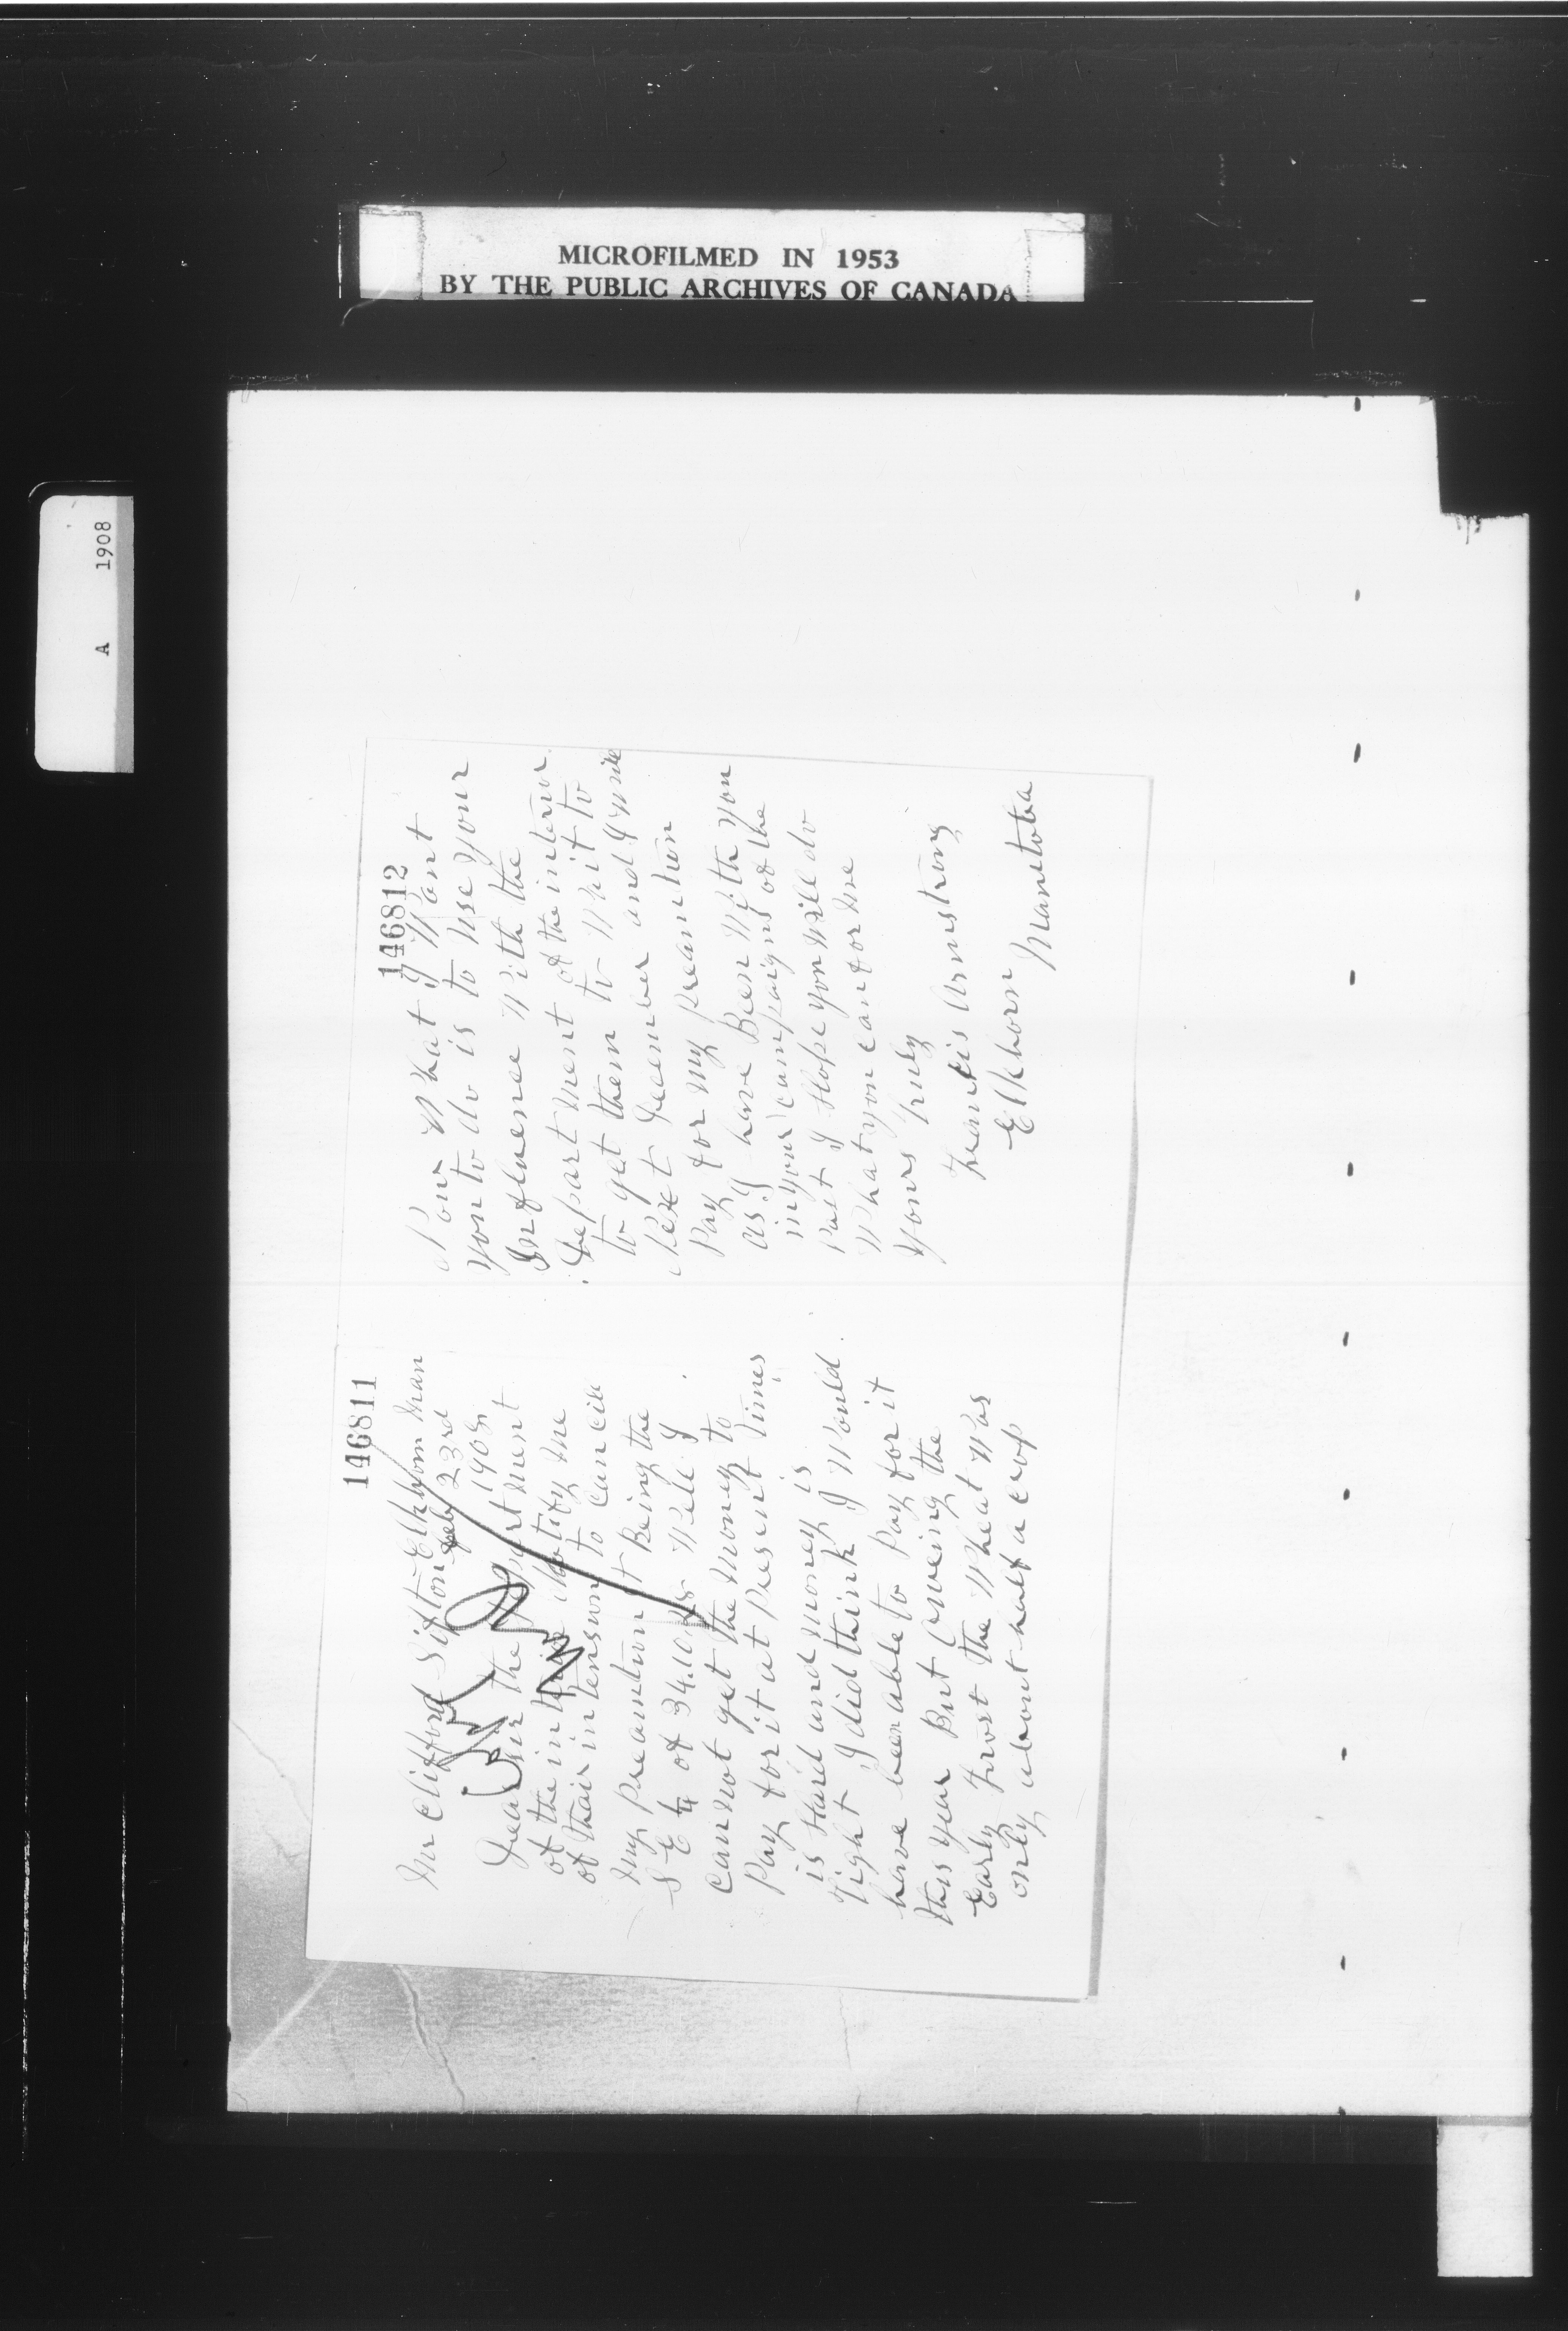 MICROFILMED IN 1953
BY THE PUBLIC ARCHIVES OF CANADA
A 1908
146811
Elkhorn Man
Mr Clifford Sifton Feby 23rd
1908
Dear Sir the Department
of the interior Notify me
of thair intensun to Cancill
my preamtion Being the
S E 1/4 of 34.10.28 Well I
cannot get the money to
Pay for it at Present Times
is Hard and money is
Tight I did think I Would
have been able to Pay for it
this year But Oweing the
Early Frost the Wheat Was
only about half a crop
146812
Now What I Want
you to do is to use your
Influence With the
Department of the interior
to get them to Wait to
Next December and I Will
Pay for my preamtion
as I have Been With you
in your campaigns of the
Past I Hope you Will do
What you can for me
Yours Truly
Francis Armstrong
Elkhorn
Manitoba